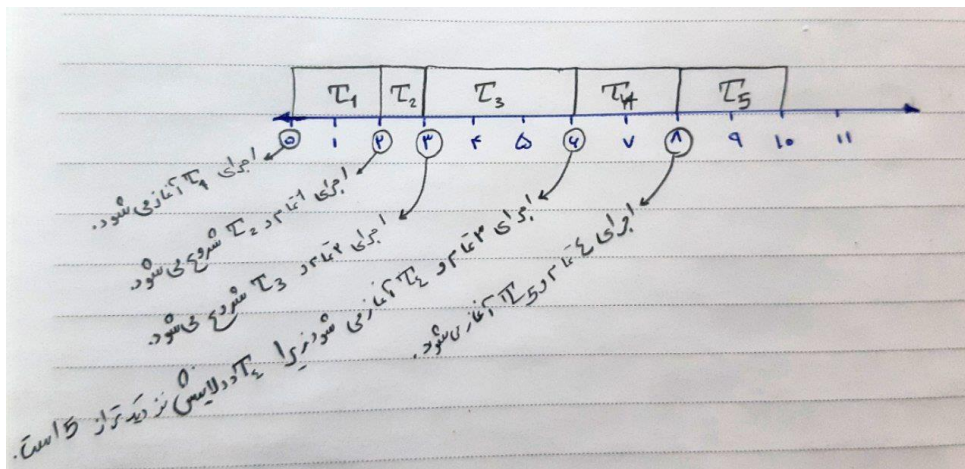 τ₁ τ₂ τ₃ τ₄ τ₅
۰ ۱ ۲ ۳ ۴ ۵ ۶ ۷ ۸ ۹ ۱۰ ۱۱
اجرای τ₁ آغاز می شود.
اجرای ۱ تمام و τ₂ شروع می شود.
اجرای ۲ تمام و τ₃ شروع می شود.
اجرای ۳ تمام و τ₄ آغاز می شود زیرا τ₄ ددلاینش نزدیک تر از 5 است.
اجرای ٤ تمام و τ₅ آغاز می شود.